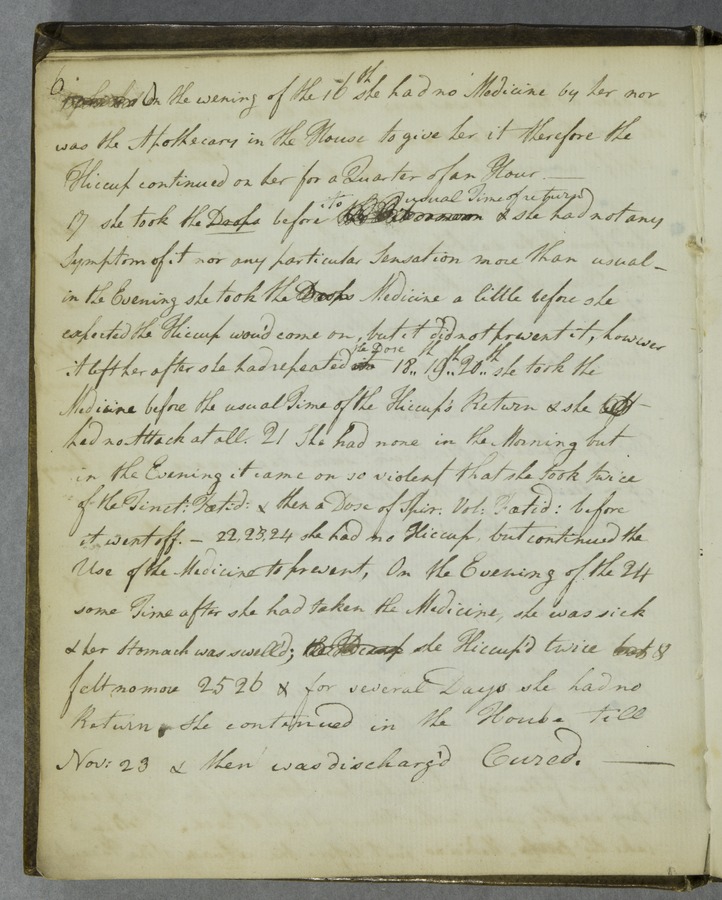 6
On the evening of the 16th she had no Medicine by her nor
was the Apothecary in the House to give her it therefore the
Hiccup continued on her for a Quarter of an Hour. —
17 she took the Drops before its usual Time of return & she had not any
Symptom of it nor any particular Sensation more than usual –
in the Evening she took the Drops Medicine a little before she
expected the Hiccup wou'd come on, but it did not prevent it, however
it left her after she had repeated the Dose 18.. 19th.. 20..th she took the
Medicine before the usual Time of the Hiccup's Return & she
had no Attack at all. 21 She had none in the Morning but
in the Evening it came on so violent that she took twice
of the Tinct: Fœtid: & then a Dose of Spir. Vol: Fœtid: before
it went off. – 22, 23, 24 she had no Hiccup, but continued the
Use of the Medicine to prevent, On the Evening of the 24
some Time after she had taken the Medicine, she was sick
& her Stomach was swell'd; the Hiccup she Hiccup'd twice but &
felt no more 25 26 & for several Days she had no
Return, she continued in the House till
Nov: 23 & then was discharg'd Cured. —